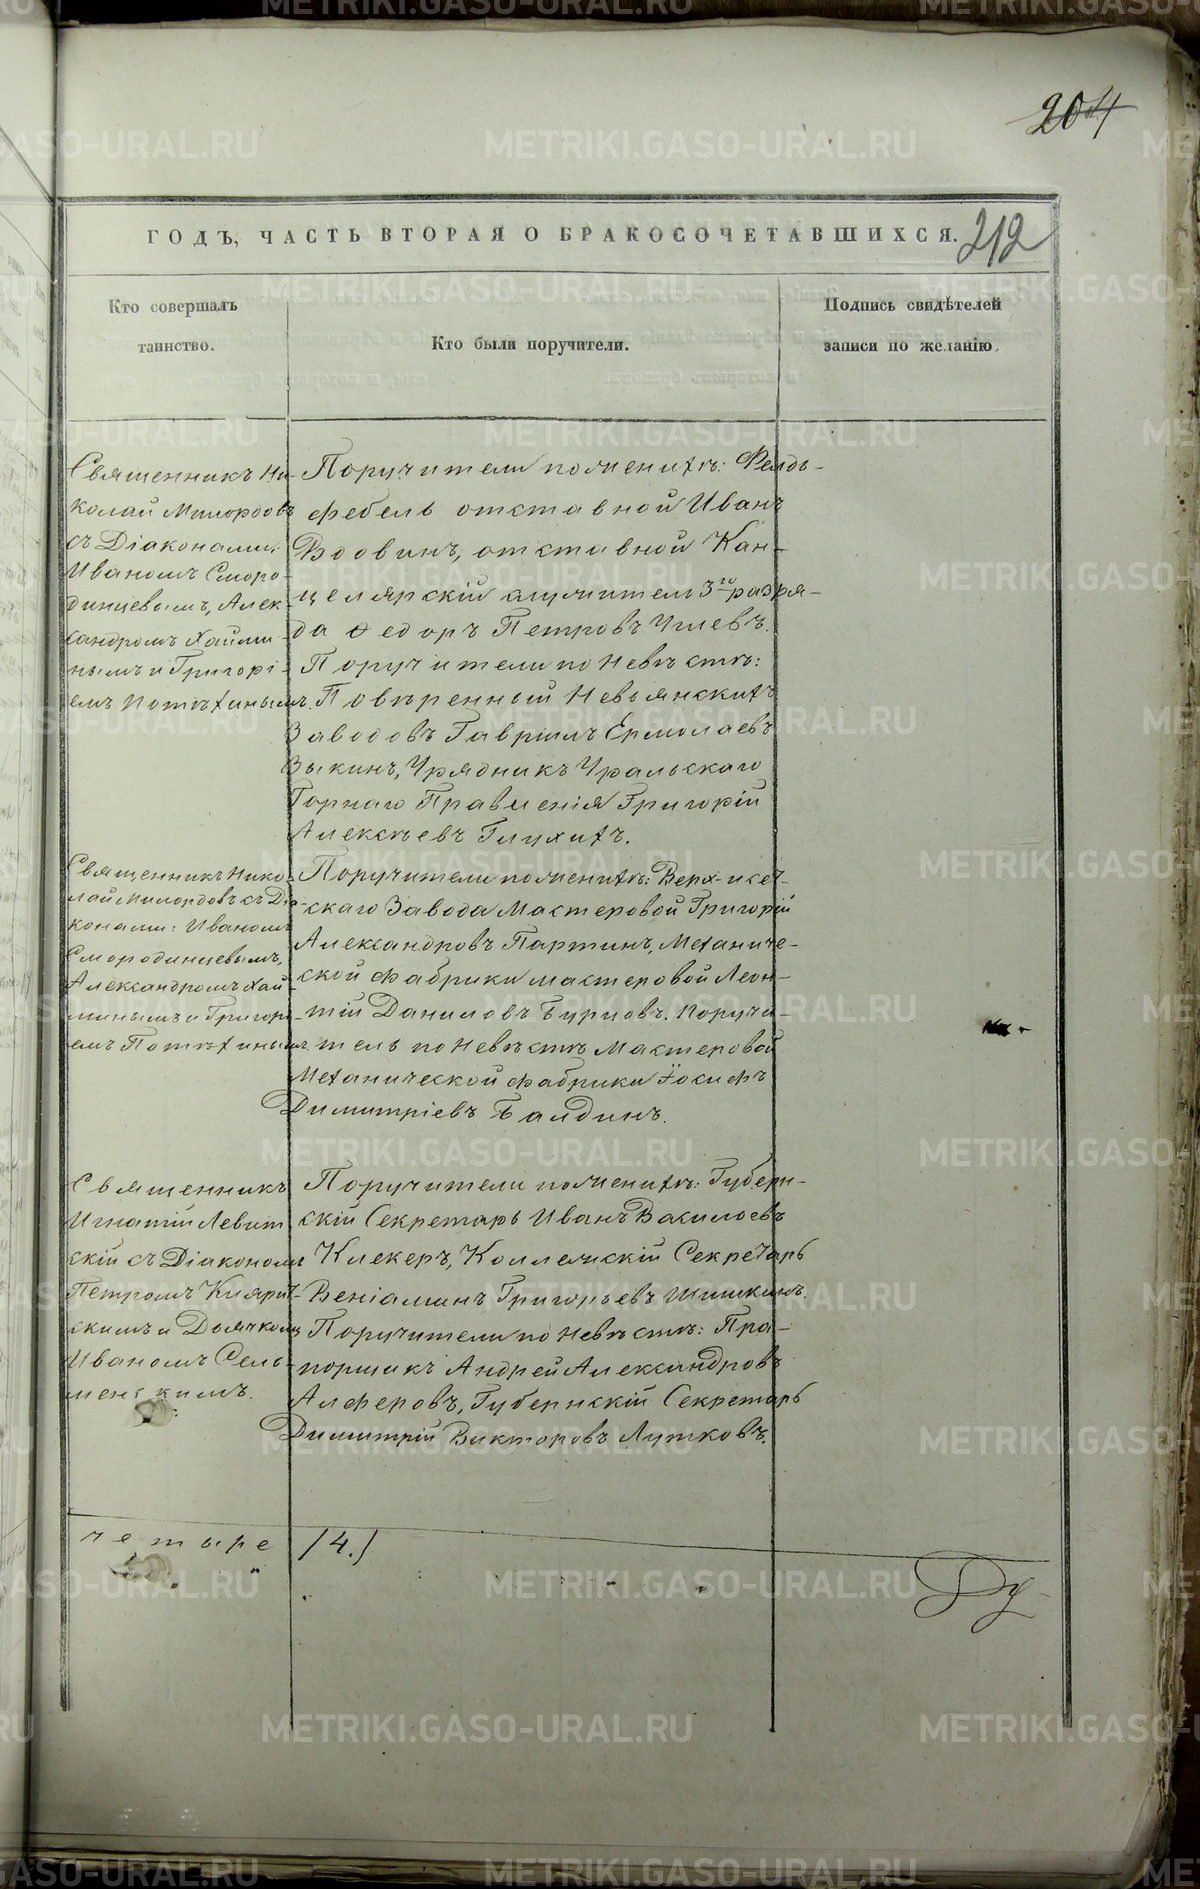 204
ГОДЪ, ЧАСТЬ ВТОРАЯ О БРАКОСОЧЕТАВШИХСЯ.
212
Кто совершалъ
таинство.
Кто были поручители.
Подпись свидѣтелей
записи по желанію.
Священникъ Ни-
колай Милордовъ
съ Діаконами:
Иваномъ Сморо-
динцевымъ, Алек-
сандромъ Хайми-
нымъ и Григорі-
емъ Потѣхинымъ.
Поручители по женихѣ: Фельд-
фебель отставной Иванъ
Вдовинъ, отставной Кан-
целярскій служитель 3го разря-
да Ѳедоръ Петровъ
Поручители по Невѣстѣ:
Повѣренный Невьянскихъ
Заводовъ Гавріилъ Ермолаевъ
Зыкинъ, Урядникъ Уральскаго
Горнаго Правленія Григорій
Алексѣевъ Глухихъ.
Священникъ Нико-
лай Милордовъ съ Діа-
конами: Иваномъ
Смородинцевымъ,
Александромъ Хай-
минымъ и Григорі-
емъ Потѣхинымъ
Поручители по женихѣ: Верх-исет-
скаго Завода Мастеровой Григорій
Александровъ Партинъ, Механиче-
ской фабрики мастеровой Леон-
тій Даниловъ Бурцовъ. Поручи-
тель по Невѣстѣ Мастеровой
Механической фабрики Іосифъ
Димитріевъ Балдинъ.
Священникъ
Игнатій Левит
скій съ Діакономъ
Петромъ
скимъ и Дьячкомъ
Иваномъ Сель-
менскимъ.
Поручители по женихѣ: Губерн-
скій Секретарь Иванъ Васильевъ
Клекеръ, Коллежскій Секретарь
Веніаминъ Григорьевъ Шишкинъ.
Поручители по Невѣстѣ: Пра-
порщикъ Андрей Александровъ
Алферовъ, Губернскій Секретарь
Димитрій Викторовъ Лутковъ.
четыре /4./